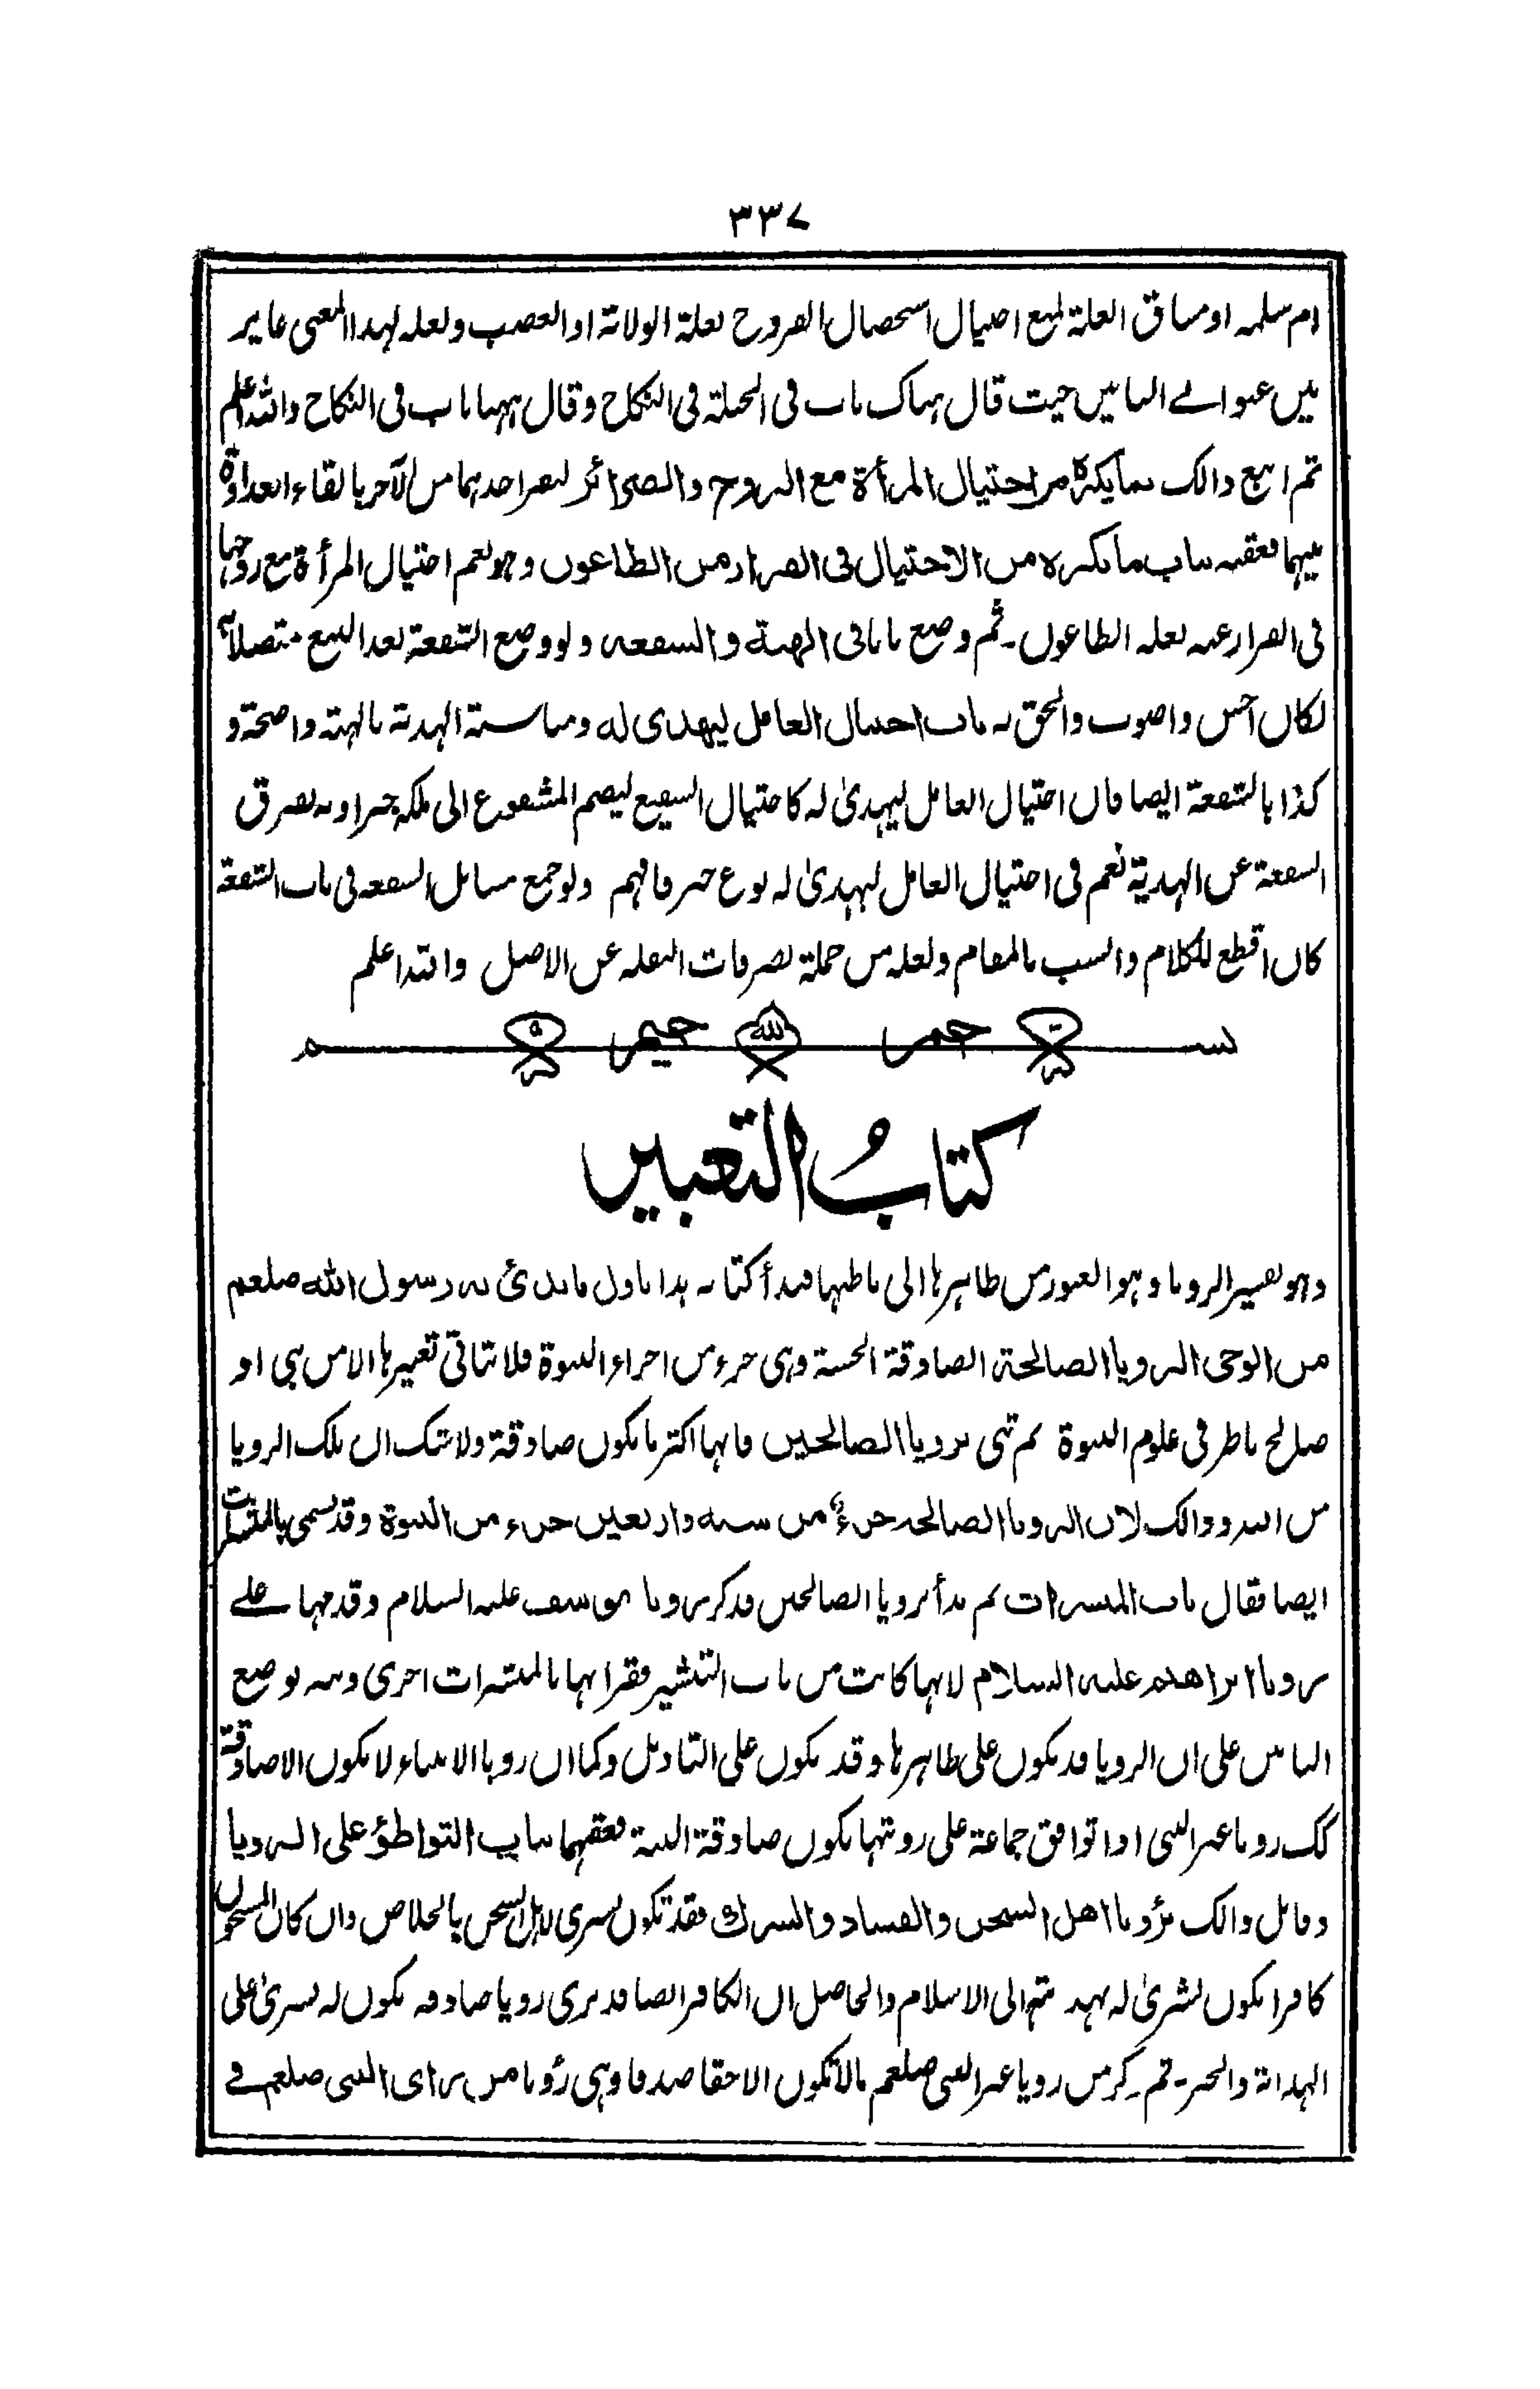 ٣٣٧
ام سلمہ او مساق العلة لمنع احتیال استحصال الفروج بعلة الولاتة او الغصب ولعله لهذا المعنی غایر
بین عنوانے البابین حیث قال هناک باب فی الحیلة فی النکاح وقال ههنا باب فی النکاح والله اعلم
ثم اتبع ذالک بما یکره من احتیال المرأة مع الزوج والضرائر لیضر احدیهما من الآخر بالقاء العداوة
بینهما فعقبه بباب ما یکره من الاحتیال فی الفرار من الطاعون وهو یعم احتیال المرأة مع زوجها
فی الفرار عنه بعلة الطاعون۔ ثم وضع بابا فی الهبة والشفعة ولو وضع الشفعة بعد البیع متصلا به
لکان احسن واصوب والحق به باب احتیال العامل لیهدی له ومناسبة الهدیة بالهبة واضحة و
کذا بالشفعة ایضا فان احتیال العامل لیهدیٰ له کاحتیال الشفیع لیضم المشفوع الی ملکه جبرا وبه تفرق
الشفعة عن الهدیة نعم فی احتیال العامل لیهدیٰ له نوع جبر فافهم ولو جمع مسائل الشفعة فی باب الشفعة
کان اقطع للکلام وانسب بالمقام ولعله من جملة تصرفات النقلة عن الاصل والله اعلم
بسم الله الرحمن الرحیم
کتابُ التعبیر
وهو تفسیر الرویا وهو العبور من ظاهرها الی باطنها فبدأ کتابه هذا باول ما بدئ به رسول الله صلعم
من الوحی الرویا الصالحة الصادقة الحسنة وهی جزء من اجزاء النبوة فلا یتاتی تعبیرها الا من نبی او
صالح ناظر فی علوم النبوة ثم ثنی برویا الصالحین فانها اکثر ما یکون صادقة ولا شک ان تلک الرویا
من الله وذالک لان الرویا الصالحة جزء من ستة واربعین جزء من النبوة وقد تسمی بالمبشرات
ایضا فقال باب المبشرات ثم بدأ برویا الصالحین فذکر برویا یوسف علیه السلام وقدمها علے
رویا ابراهیم علیه السلام لانها کانت من باب التبشیر فقرانها بالمبشرات احری ونبه بوضع
البابین علی ان الرویا قد یکون علی ظاهرها وقد یکون علی التاویل وکما ان رویا الانبیاء لا یکون الا صادقة
کک رویا غیر النبی اذا توافق جماعة علی رویتها یکون صادقة البتة فعقبهما بباب التواطؤ علی الرویا
وقابل ذالک برؤیا اهل السجن والفساد والشرک فقد تکون بشری لاهل السجن بالخلاص وان کان المسجون
کافرا یکون بشریٰ له بهدیته الی الاسلام والحاصل ان الکافر ایضا قد یری رویا صادقة یکون له بشریٰ علی
الهدایة والخیر۔ ثم ذکر من رویا غیر النبی صلعم مالا تکون الا حقا صدقا وهی رؤیا من رای النبی صلعم فے